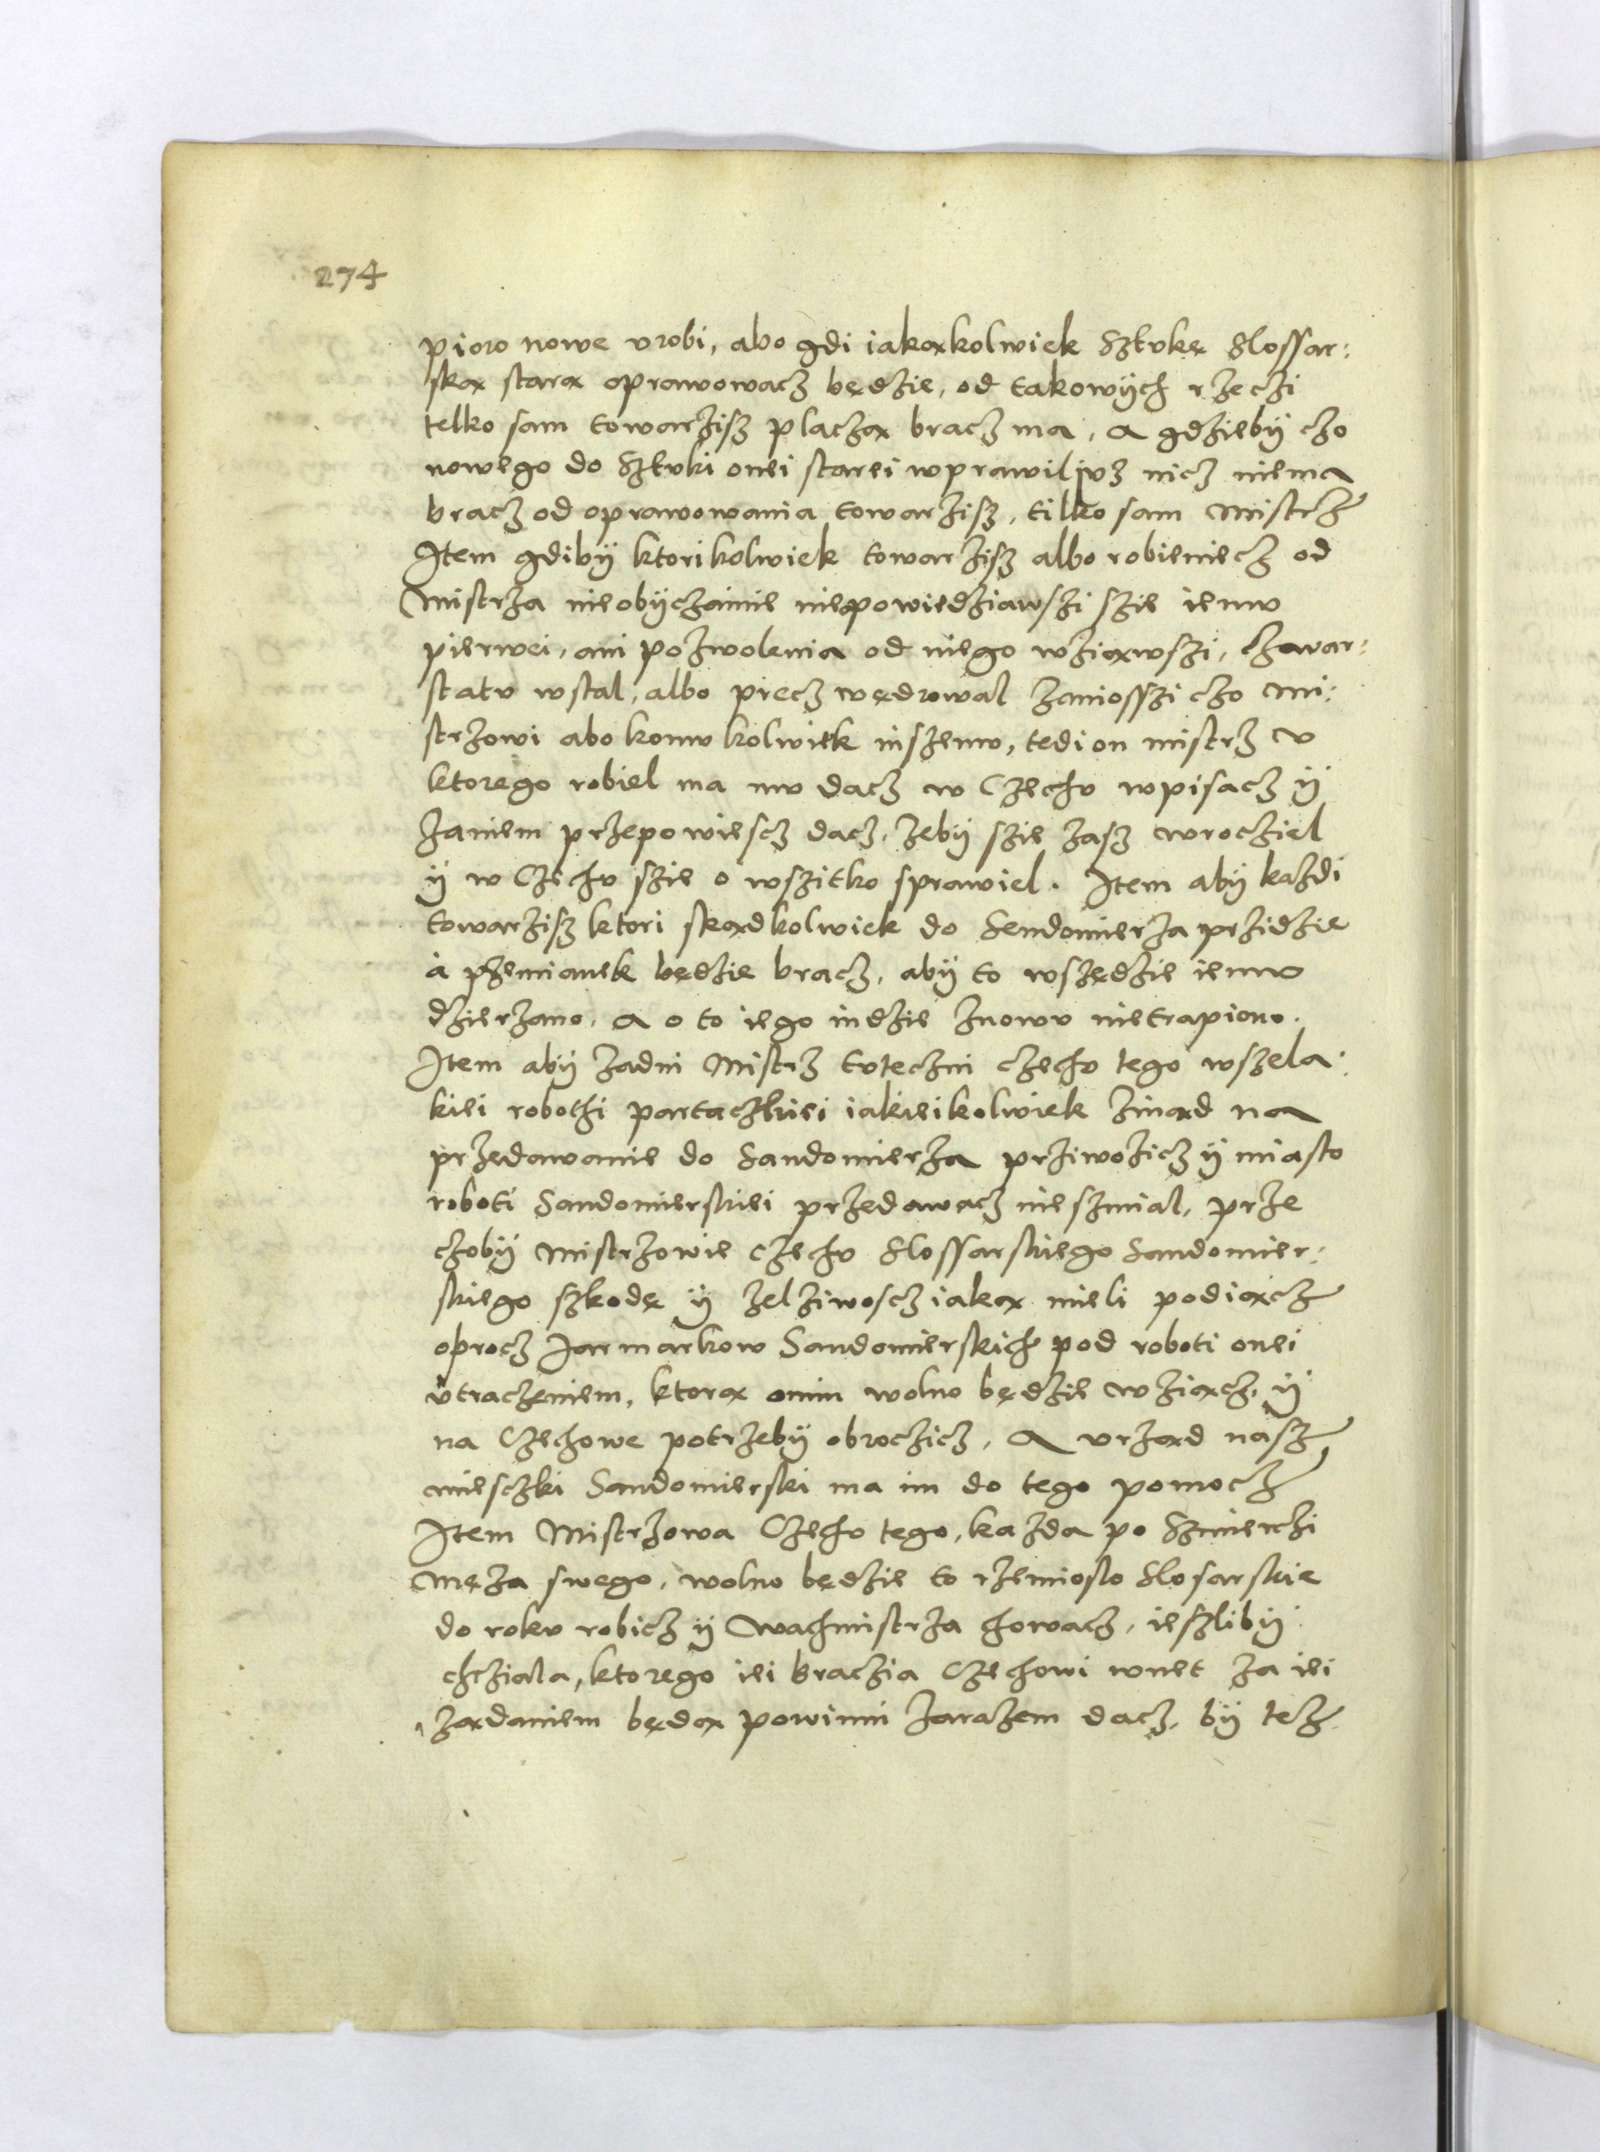 274
pioro nowe vrobi, abo gdi iakąkolwiek Sztvkę Slossar:
ską starą oprawowacz będzie, od takowÿch rzeczi
telko sam towarzisz placzą bracz ma, A gdziebÿ czo
nowego do Sztvki onei starei wprawil ivz nicz niema
bracz od oprawowania towarzisz, tilko sam Mistrz
Item gdibÿ ktorikolwiek towarzisz albo robieniecz od
Mistrza nieobÿczainie niepowiedziawszi szie iemv
pierwei, ani pozwolenia od niego wziąwszi, zawar:
statv wstal, albo precz wędrowal zaniosszi czo Mi:
strzowi abo komv kolwiek inszemv, tedi on mistrz v
ktorego robiel ma mv dacz w Czechv wpisacz ÿ
zaniem przepowiescz dacz, zebÿ szie zasz wrocziel
ÿ w Czechv szie o wszitko sprawiel. Item abÿ kazdi
towarzisz ktori skądkolwiek do Sendomierza przidzie
a przemianek będzie bracz, abÿ to wszędzie iemv
dzierzano, A o to iego indzie znowv nietrapiono.
Item abÿ zadni Mistrz tvteczni czechv tego wszela:
kiei robothi partaczkiei iakieikolwiek zinąd na
przedawanie do Sandomierza prziwozicz ÿ miasto
roboti Sandomierskiei przedawacz nieszmial, prze
czobÿ Mistrzowie czechv Slossarskiego Sandomier:
skiego szkodę ÿ zelziwoscz iaką mieli podiącz
oprocz Jarmarkow Sandomierskich pod roboti onei
vtraczeniem, ktorą onim wolno będzie wziącz, ÿ
na Czechowe potrzebÿ obroczicz, A vrząd nasz
miesczki Sandomierski ma im do tego pomocz
Item Mistrzowa Czechv tego, kazda po Szmierczi
Męza swego, wolno będzie to rzemioslo Slosarskie
do rokv robicz ÿ Wachmistrza chowacz, ieszlibÿ
chcziala, ktorego iei braczia Czechowi wnet za iei
ządaniem będą powinni zarazem dacz, bÿ tez